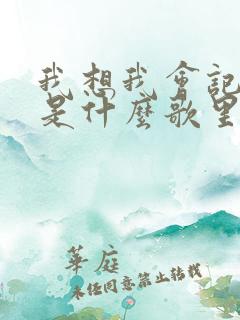 我想我會記
是什麼歌里
華庭
未經同意禁止转载